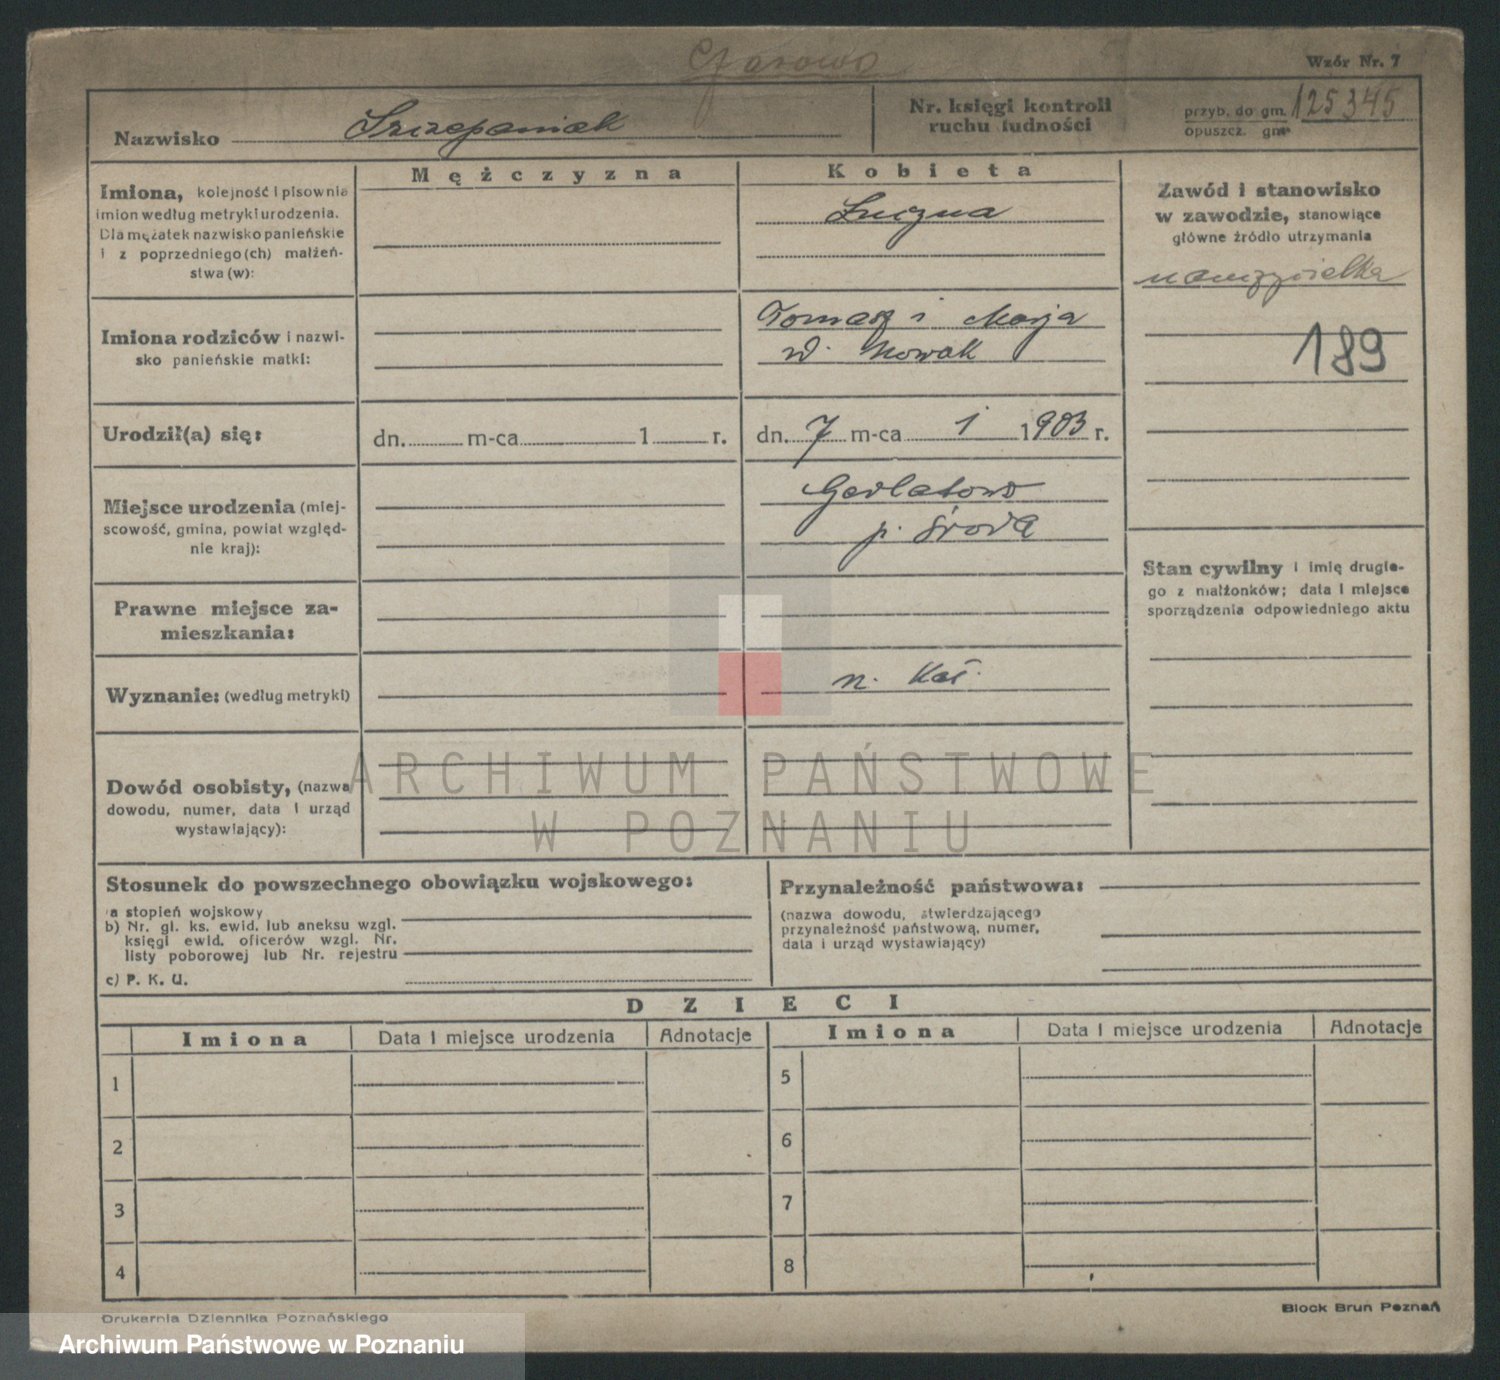 Wzór Nr. 7
Nazwisko Szczepaniak
Nr. księgi kontroli
ruchu ludności
przyb. do gm. 125345
opuszcz. gm.
Mężczyzna
Kobieta
Imiona, kolejność i pisownia
imion według metryki urodzenia.
Dla mężatek nazwisko panieńskie
i z poprzedniego (ch) małżeń-
stwa (w):
Imiona rodziców i nazwi-
sko panieńskie matki:
Tomasz i Marja
Nowak
Urodził(a) się:
dn. m-ca 1 r.
dn. 7 m-ca 1 1903 r.
Miejsce urodzenia (miej-
scowość, gmina, powiat względ-
nie kraj):
p. Środa
Prawne miejsce za-
mieszkania:
Wyznanie: (według metryki)
Kat.
Dowód osobisty, (nazwa
dowodu, numer, data i urząd
wystawiający):
Zawód i stanowisko
w zawodzie, stanowiące
główne źródło utrzymania
nauczycielka
189
Stan cywilny i imię drugie-
go z małżonków; data i miejsce
sporządzenia odpowiedniego aktu
ARCHIWUM PAŃSTWOWE
W POZNANIU
Stosunek do powszechnego obowiązku wojskowego:
a stopień wojskowy
b) Nr. gł. ks. ewid. lub aneksu wzgl.
księgi ewid. oficerów wzgl. Nr.
listy poborowej lub Nr. rejestru
c) P. K. U.
Przynależność państwowa:
(nazwa dowodu, stwierdzającego
przynależność państwową, numer,
data i urząd wystawiający)
DZIECI
Imiona Data i miejsce urodzenia Adnotacje Imiona Data i miejsce urodzenia Adnotacje
1 5
2 6
3 7
4 8
Drukarnia Dziennika Poznańskiego
Block Brun Poznań
Archiwum Państwowe w Poznaniu